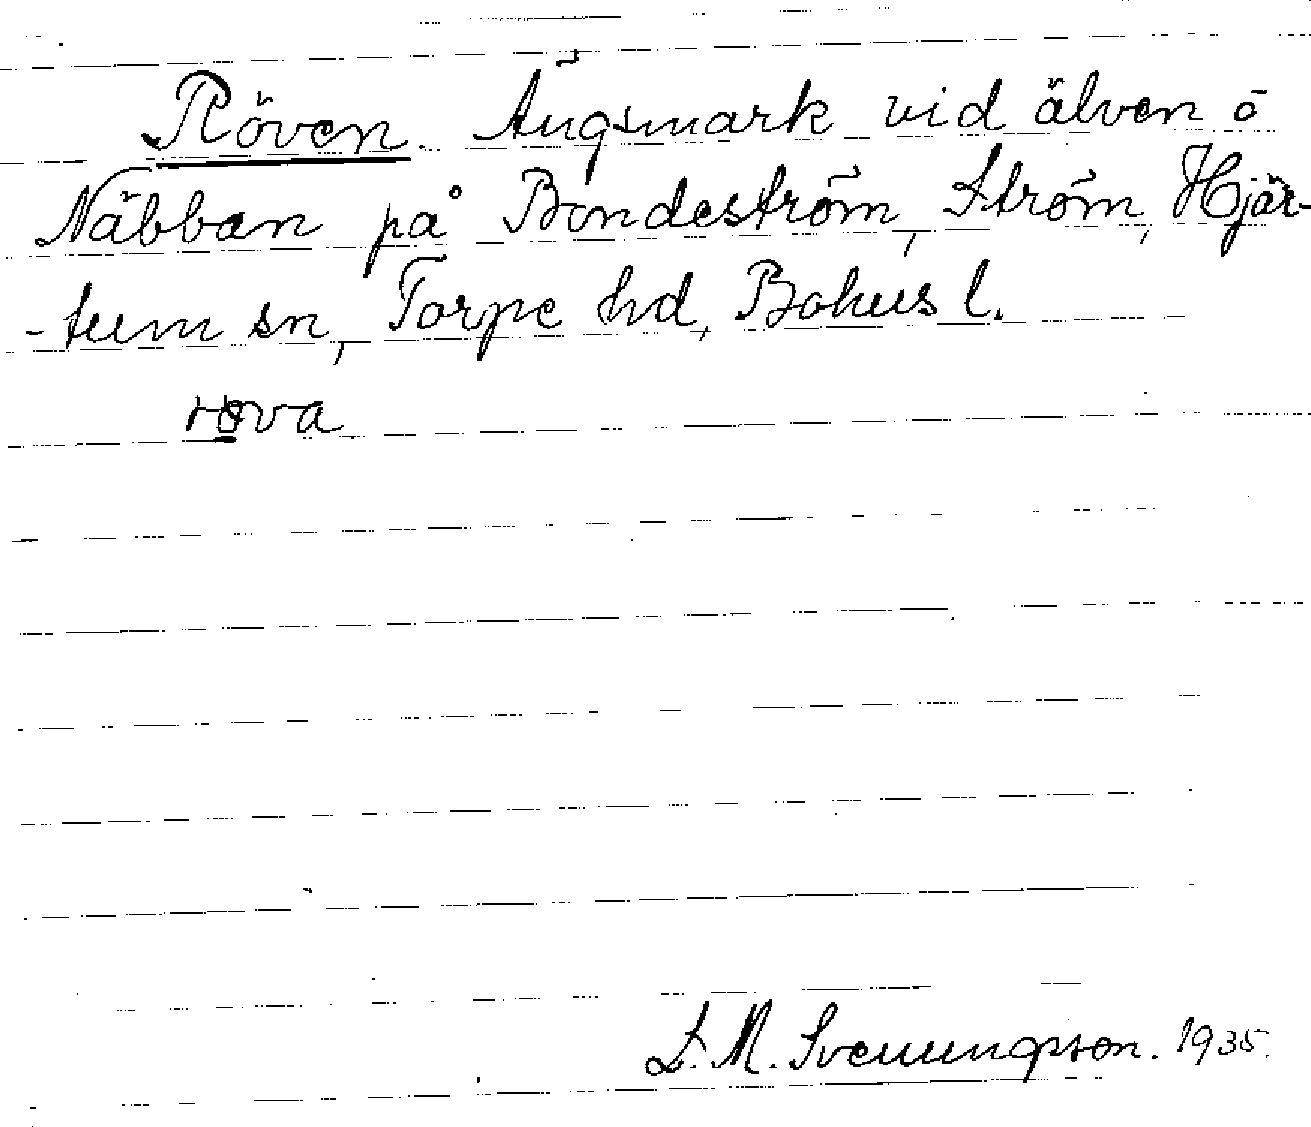 Röven. Ängsmark vid älven ö
Näbban på Bondeström, Ström, Hjär-
-tum sn, Torpe hd, Bohus l.
rova
S. M. Svenungsson. 1935.